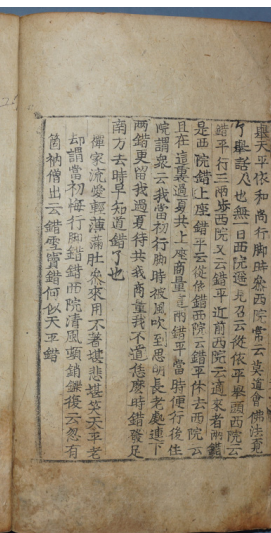 舉天平依和尚行脚時叅西院常云莫道會佛法覓
个舉話人也無一日西院遙見召云從依平舉頭西院云
錯平行三兩步西院又云錯平近前西院云適來者兩錯
是西院錯上座錯平云從依錯西院云錯平休去西院云
且在這裏過夏共上座商量這兩錯平當時便行後住
院謂衆云我當初行脚時被風吹到思明長老處連下
兩錯更留我過夏待共我商量我不道恁麽時錯發足
南方去時早知道錯了也
禪家流愛輕薄滿肚叅來用不著堪悲堪笑天平老
却謂當初悔行脚錯錯西院清風頓銷鑠復云忽有
箇衲僧出云錯雪竇錯何似天平錯